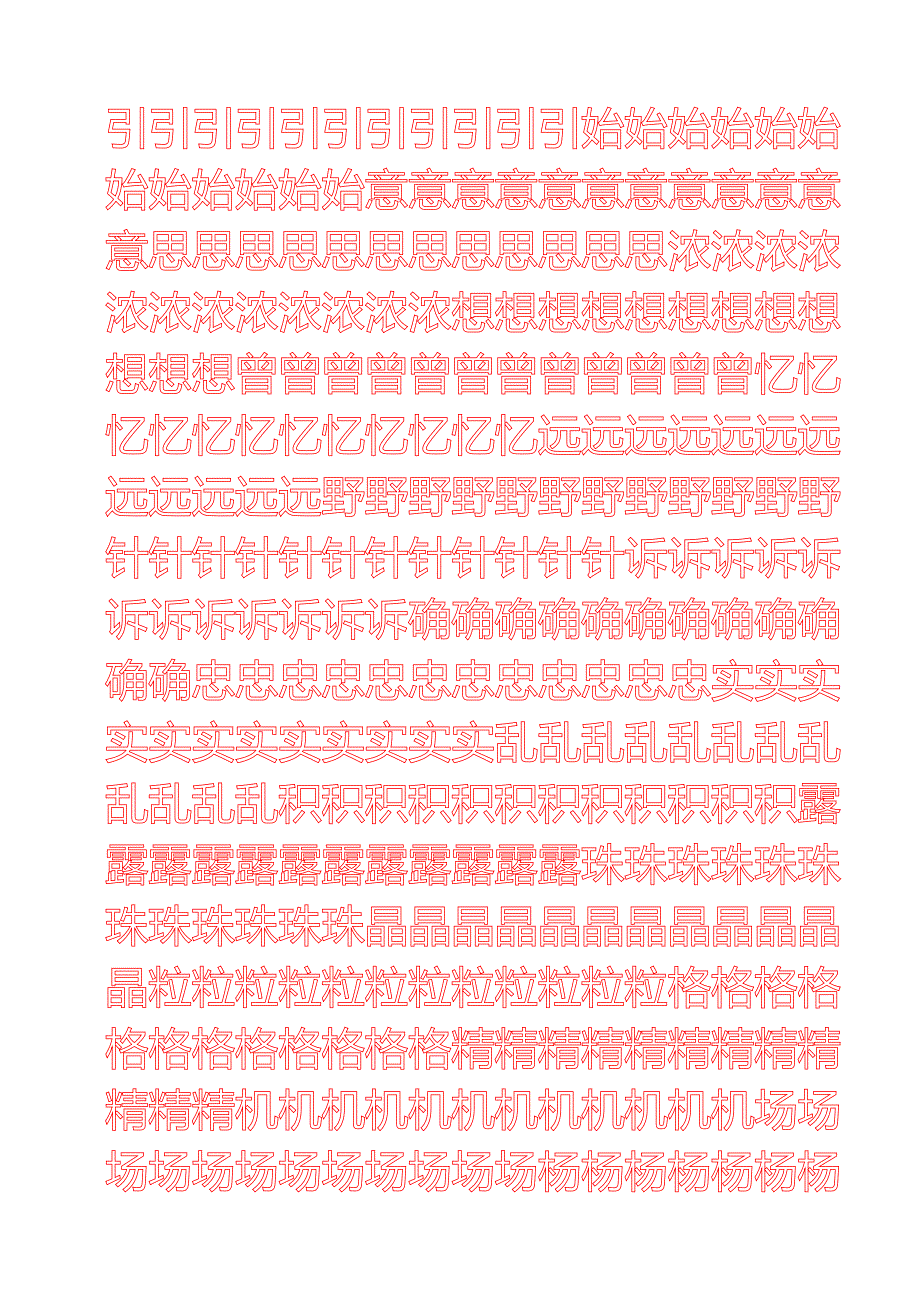 引引引引引引引引引引引始始始始始始
始始始始始始意意意意意意意意意意意
意思思思思思思思思思思思思浓浓浓浓
浓浓浓浓浓浓浓浓想想想想想想想想想
想想想曾曾曾曾曾曾曾曾曾曾曾曾忆忆
忆忆忆忆忆忆忆忆忆忆远远远远远远远
远远远远远野野野野野野野野野野野野
针针针针针针针针针针针针诉诉诉诉诉
诉诉诉诉诉诉诉确确确确确确确确确确
确确忠忠忠忠忠忠忠忠忠忠忠忠实实实
实实实实实实实实实乱乱乱乱乱乱乱乱
乱乱乱乱积积积积积积积积积积积积露
露露露露露露露露露露露珠珠珠珠珠珠
珠珠珠珠珠珠晶晶晶晶晶晶晶晶晶晶晶
晶粒粒粒粒粒粒粒粒粒粒粒粒格格格格
格格格格格格格格精精精精精精精精精
精精精机机机机机机机机机机机机场场
场场场场场场场场场场杨杨杨杨杨杨杨